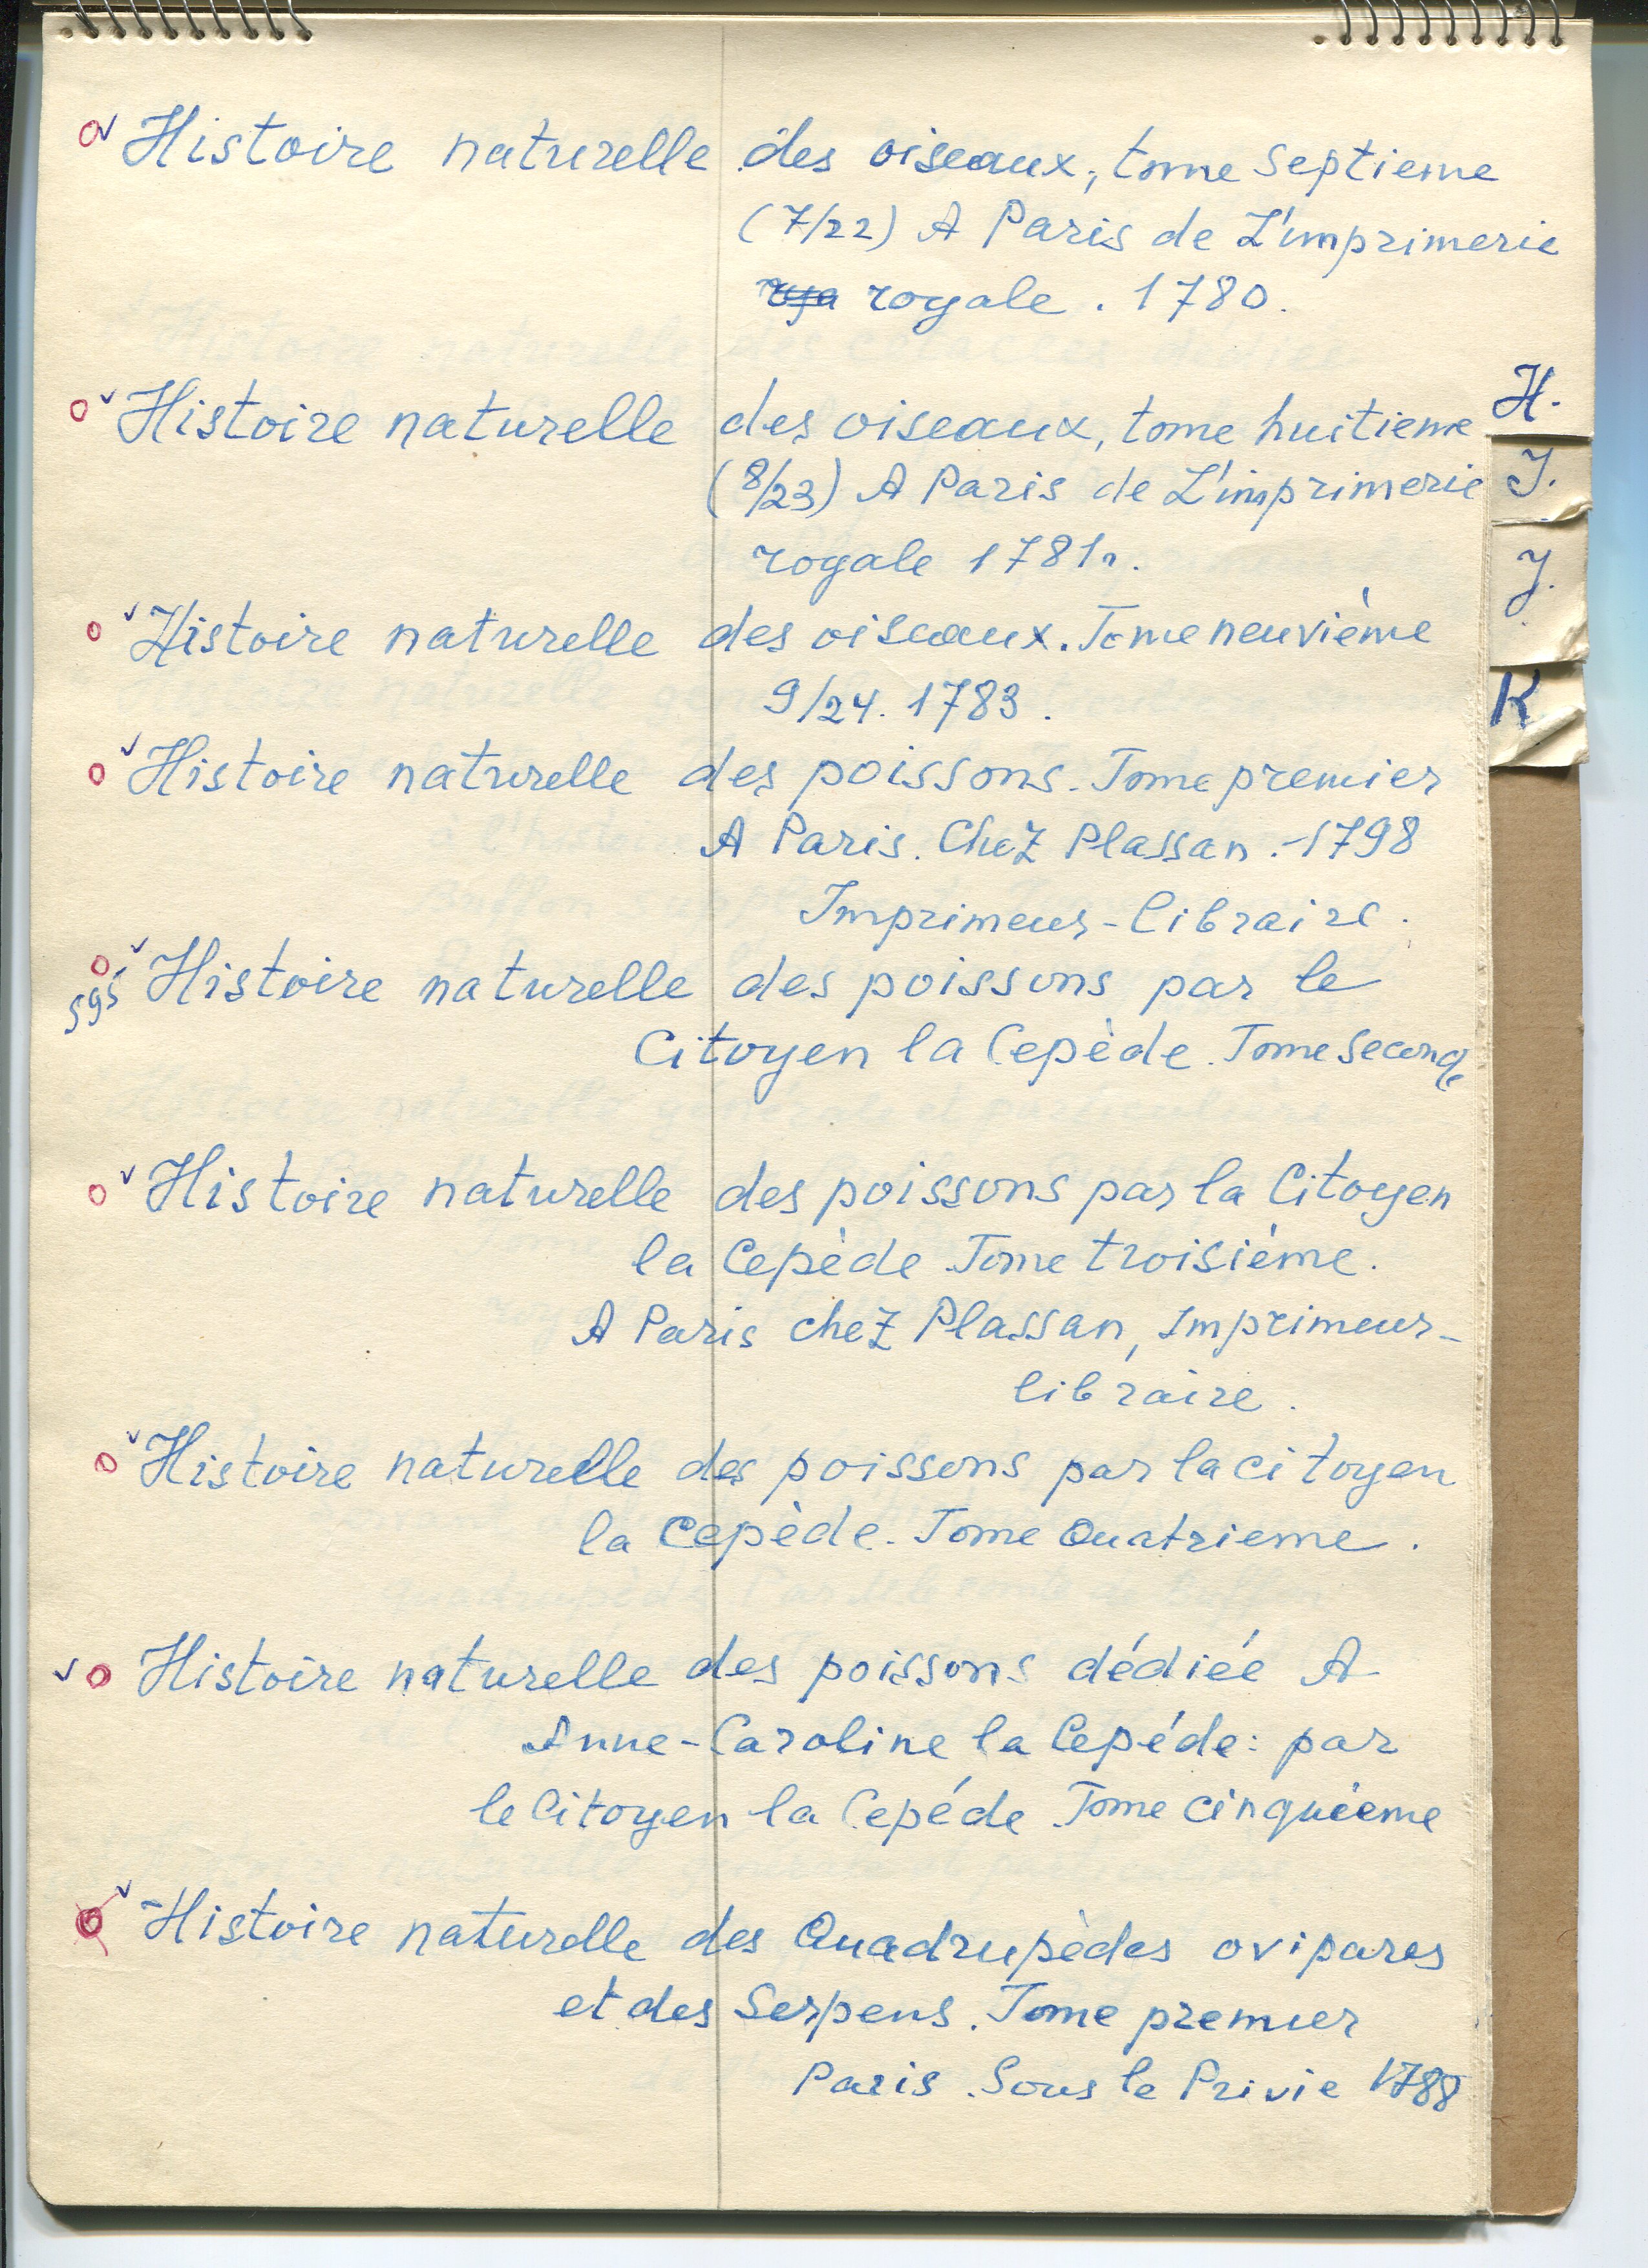 Histoire naturelle des oiseaux, tome septieme
(7/22) A Paris de L'imprimerie
rya royale. 1780.
H.
Histoire naturelle des oiseaux, tome huitieme
(8/23) A Paris de L'imprimerie
J.
royale 1781r.
J.
Histoire naturelle des oiseaux. Tome neuvième
9/24. 1783.
K
Histoire naturelle des poissons. Tome premier
A Paris. Chez Plassan.-1798
Imprimeur-libraire.
595 Histoire naturelle des poissons par le
Citoyen la Cepède. Tome Second
Histoire naturelle des poissons par la Citoyen
la Cepède Tome troisiéme.
A Paris chez Plassan, Imprimeur-
libraire.
Histoire naturelle des poissons par la citoyen
la Cepède. Tome Quatrieme.
Histoire naturelle des poissons dédiée A
Anne-Caroline la Cepéde: par
le Citoyen la Cepéde Tome cinquieme
Histoire naturelle des Quadrupèdes ovipares
et des Serpens. Tome premier
Paris. Sous le Privie 1788